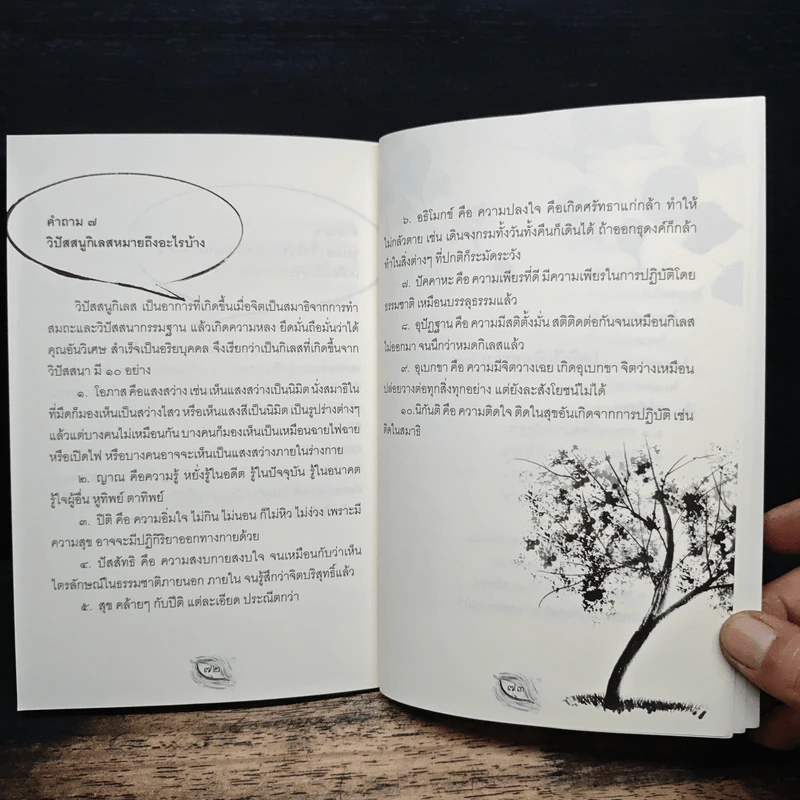 คำถาม ๗
วิปัสสนูกิเลสหมายถึงอะไรบ้าง
วิปัสสนูกิเลส เป็นอาการที่เกิดขึ้นเมื่อจิตเป็นสมาธิจากการทำ
สมถะและวิปัสสนากรรมฐาน แล้วเกิดความหลง ยึดมั่นถือมั่นว่าได้
คุณอันวิเศษ สำเร็จเป็นอริยบุคคล จึงเรียกว่าเป็นกิเลสที่เกิดขึ้นจาก
วิปัสสนา มี ๑๐ อย่าง
๑. โอภาส คือแสงสว่าง เช่น เห็นแสงสว่างเป็นนิมิต นั่งสมาธิใน
ที่มืดก็มองเห็นเป็นสว่างไสว หรือเห็นแสงสีเป็นนิมิต เป็นรูปร่างต่างๆ
แล้วแต่บางคนไม่เหมือนกัน บางคนก็มองเห็นเป็นเหมือนฉายไฟฉาย
หรือเปิดไฟ หรือบางคนอาจจะเห็นเป็นแสงสว่างภายในร่างกาย
๒. ญาณ คือความรู้ หยั่งรู้ในอดีต รู้ในปัจจุบัน รู้ในอนาคต
รู้ใจผู้อื่น หูทิพย์ ตาทิพย์
๓. ปีติ คือ ความอิ่มใจ ไม่กิน ไม่นอน ก็ไม่หิว ไม่ง่วง เพราะมี
ความสุข อาจจะมีปฏิกิริยาออกทางกายด้วย
๔. ปัสสัทธิ คือ ความสงบกายสงบใจ จนเหมือนกับว่าเห็น
ไตรลักษณ์ในธรรมชาติภายนอก ภายใน จนรู้สึกว่าจิตบริสุทธิ์แล้ว
๕. สุข คล้ายๆ กับปีติ แต่ละเอียด ประณีตกว่า
๗๒
๖. อธิโมกข์ คือ ความปลงใจ คือเกิดศรัทธาแก่กล้า ทำให้
ไม่กลัวตาย เช่น เดินจงกรมทั้งวันทั้งคืนก็เดินได้ ถ้าออกธุดงค์ก็กล้า
ทำในสิ่งต่างๆ ที่ปกติก็ระมัดระวัง
๗. ปัคคาหะ คือ ความเพียรที่ดี มีความเพียรในการปฏิบัติโดย
ธรรมชาติ เหมือนบรรลุธรรมแล้ว
๘. อุปัฏฐาน คือ ความมีสติตั้งมั่น สติติดต่อกันจนเหมือนกิเลส
ไม่ออกมา จนนึกว่าหมดกิเลสแล้ว
๙. อุเบกขา คือ ความมีจิตวางเฉย เกิดอุเบกขา จิตว่างเหมือน
ปล่อยวางต่อทุกสิ่งทุกอย่าง แต่ยังละสังโยชน์ไม่ได้
๑๐.นิกันติ คือ ความติดใจ ติดในสุขอันเกิดจากการปฏิบัติ เช่น
ติดในสมาธิ
๗๓